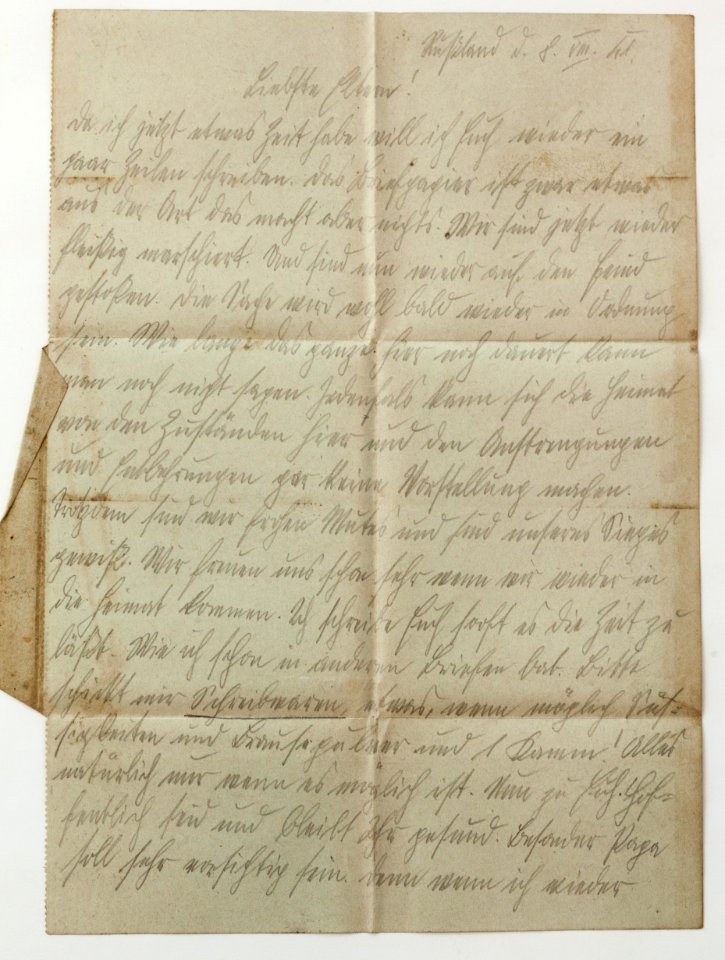 Rußland d. 8. VIII. 41.
Liebste Eltern!
Da ich jetzt etwas Zeit habe will ich Euch wieder ein
paar Zeilen schreiben. Das Briefpapier ist zwar etwas
aus der Art das macht aber nichts. Wir sind jetzt wieder
fleißig marschiert. Und sind nun wieder auf den Feind
gestoßen. Die Sache wird wohl bald wieder in Ordnung
sein. Wie lange das ganze hier noch dauert kann
man noch nicht sagen. Jedenfalls kann sich die Heimat
von den Zuständen hier und den Anstrengungen
und Entbehrungen gar keine Vorstellung machen.
Trotzdem sind wir frohen Mutes und sind unseres Sieges
gewiß. Wir freuen uns schon sehr wenn wir wieder in
die Heimat kommen. Ich schreibe Euch sooft es die Zeit zu
läßt. Wie ich schon in anderen Briefen bat. Bitte
schickt mir Schreibwaren, etwas, wenn möglich Süs-
sigkeiten und Brausepulver und 1 Kamm! Alles
natürlich nur wenn es möglich ist. Nun zu Euch. Hof-
fentlich seid und bleibt Ihr gesund. Besonder Papa
soll sehr vorsichtig sein. Denn wenn ich wieder